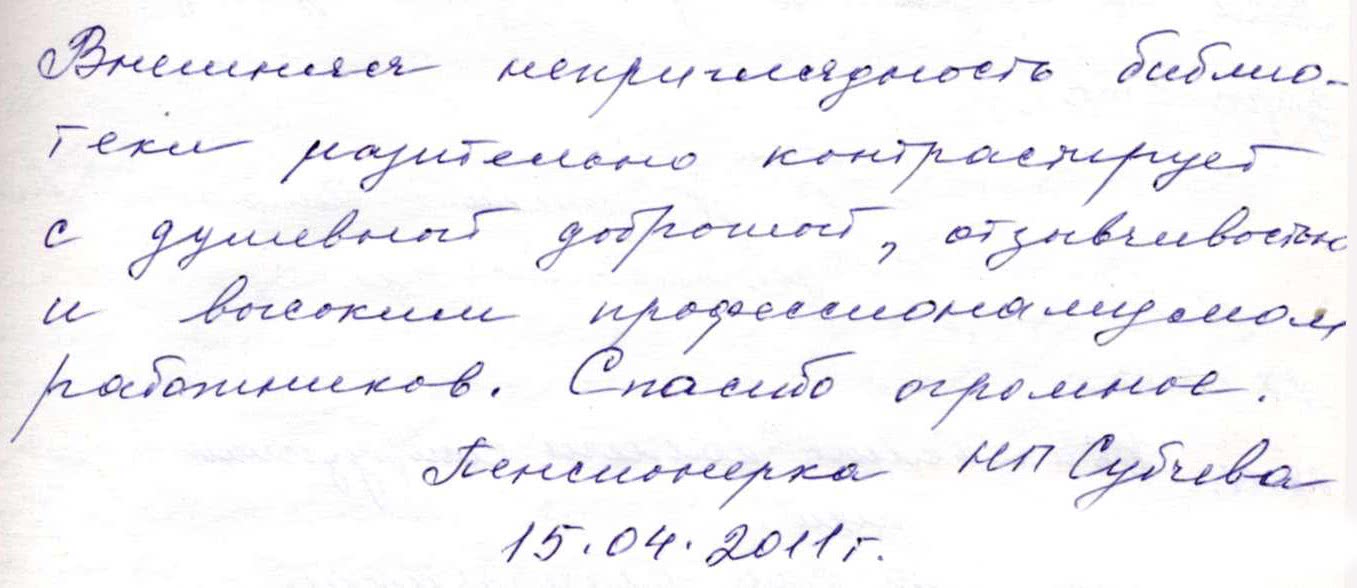 Внешняя неприглядность библио-
теки разительно контрастирует
с душевной добротой, отзывчивостью
и высоким профессионализмом
работников. Спасибо огромное.
Пенсионерка НП Субчева
15.04.2011 г.